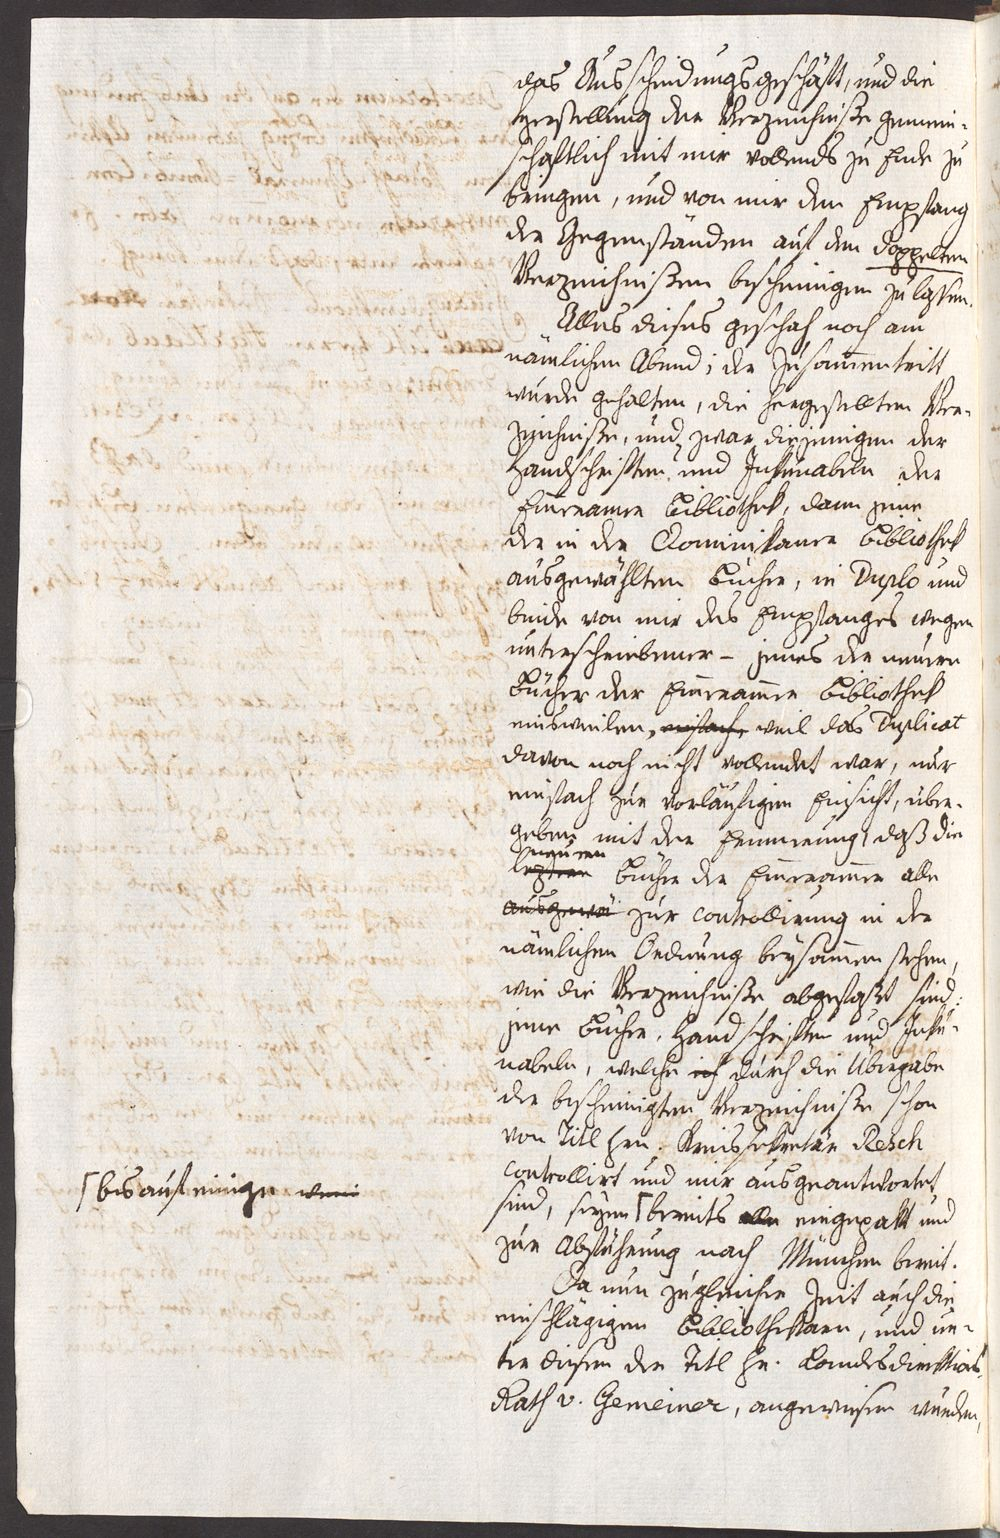 das Ausscheidungsgeschäft, und die
Herstellung der Verzeichniße gemein-
schaftlich mit mir vollends zu Ende zu
bringen, und von mir den Empfang
der Gegenständen auf den doppelten
Verzeichnißen bescheinigen zu lassen.
Alles dieses geschah noch am
nämlichen Abend; der Zusam̄entritt
wurde gehalten, die hergestellten Ver-
zeichniße, und zwar diejenigen der
Handschriften und Inkunabeln der
Em̄eramer Bibliothek, dann jene
der in der Dominikaner Bibliothek
ausgewählten Bücher, in Duplo und
beide von mir des Empfanges wegen
unterschriebener – jenes der neuern
Bücher der Em̄eram̄er Bibliothek
einsweilen, einfach, weil das Duplicat
davon noch nicht vollendet war, nur
einfach zur vorläufigen Einsicht, über-
geben mit der Erinnerung, daß die
neuern
leztern Bücher der Em̄eram̄er alle
ausgewä zur Controllirung in der
nämlichen Ordnung beysam̄en stehen,
wie die Verzeichniße abgefaßt sind:
jene Bücher, Handschriften und Inku-
nabeln, welche ich durch die Übergabe
der bescheinigten Verzeichniße schon
von Titl Hrn. Kreissekretär Resch
controllirt und mir ausgeantwortet
sind, seyen ⌈bereits alle eingepakt und
⌈bis auf einige
zur Abführung nach München bereit.
Da nun zugleicher Zeit auch die
einschlägigen Bibliothekare, und un-
ter diesen der Titl Hr. Landesdirektions-
Rath v. Gemeiner, angewiesen wurden,